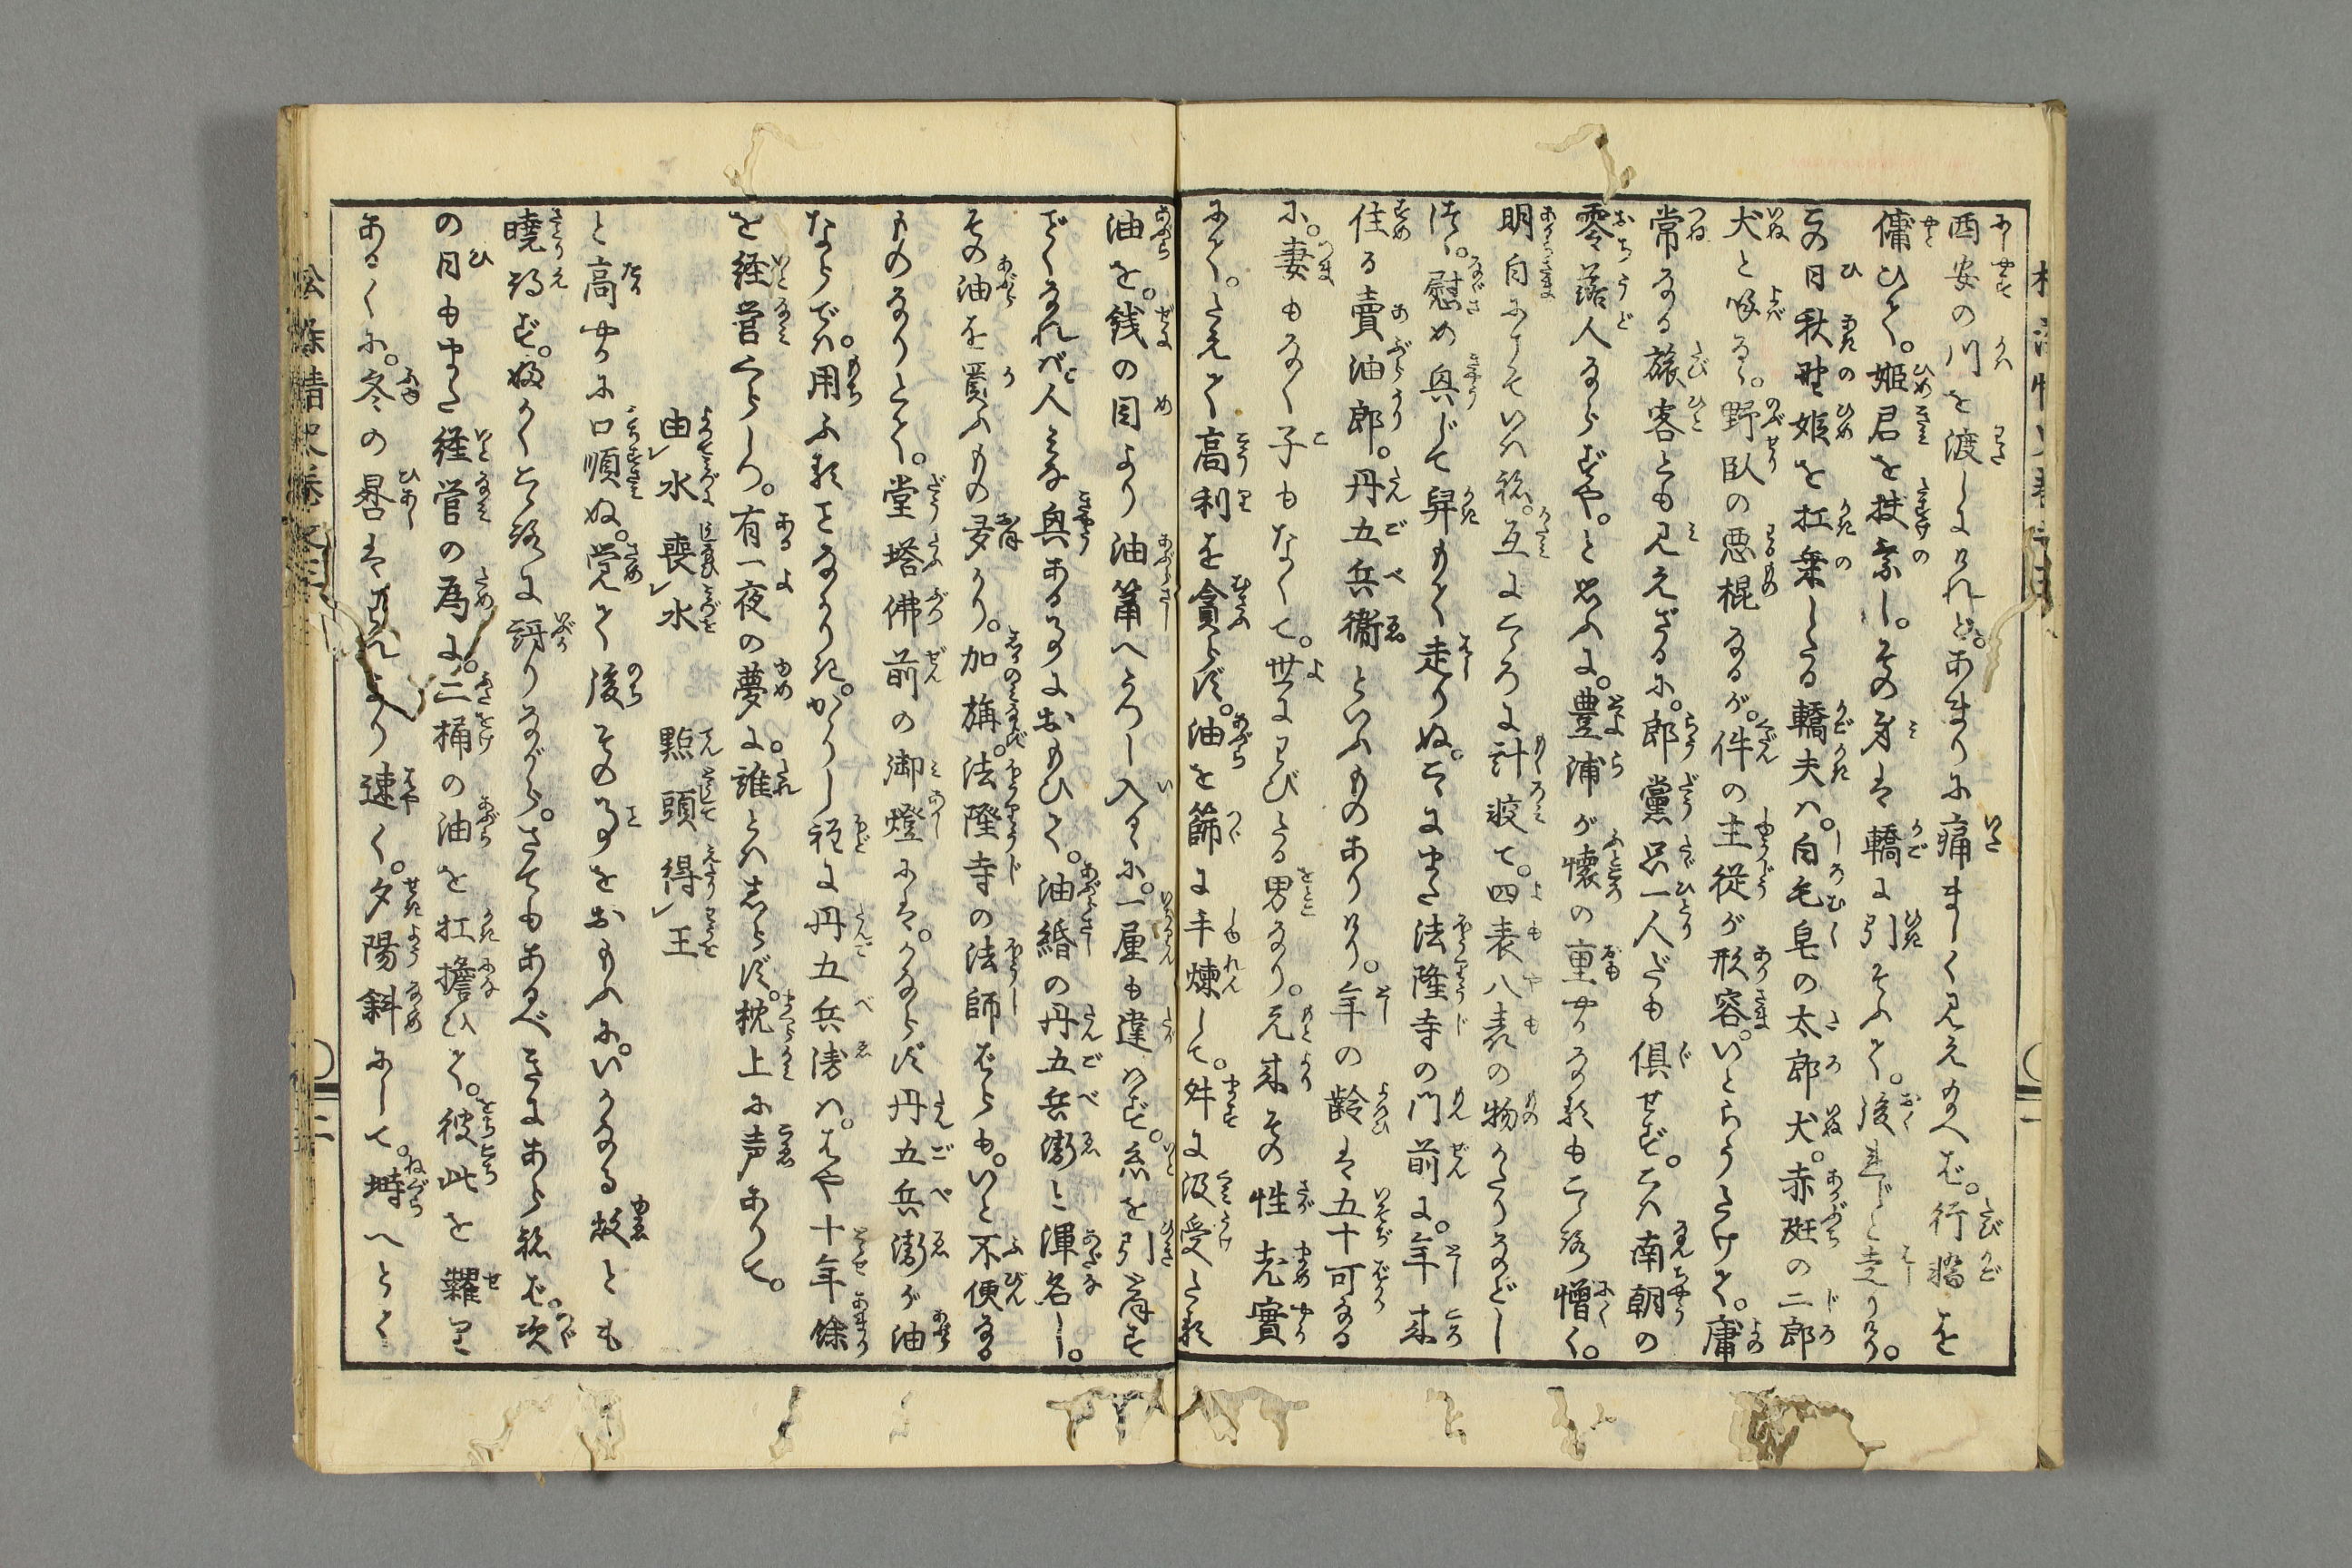 酉安の川を渡しにければ。あまりに痛ましく見え給へば。行轎を
傭ひて。姫君を扶乗し。その身は轎に引そふて。後れじと走りけり。
この日秋野姫を扛乗したる轎夫は。白毛皂の太郎犬。赤斑の二郎
犬と喚るゝ。野臥の悪棍なるが。件の主従が形容。いとらうたけて。庸
常なる旅客とも見えざるに。郎黨只一人だも倶せず。こは南朝の
零落人ならずや。と思ふに。豊浦が懐の重やかなるもこゝろ憎く。
明白にこそいはね。互にこゝろに計較て。四表八表の物かたりなどし
つゝ。慰め興じて舁もて走りぬ。こゝにまた法隆寺の門前に。年来
住る賣油郎。丹五兵衛といふものありけり。年の齢は五十可なる
に。妻もなく子もなくて。世にわびたる男なり。元来その性老實
にて。たえて高利を貪らず。油を篩に手煉して。舛に汲受たる
油を。銭の目より油筩へうつし入るに。一厘も違はず。糸を引ごとくす
でくなれば人みな興あることにおもひて。油緡の丹五兵衛と渾名し。
その油を買ふもの多かり。加旃。法隆寺の法師ばらも。いと不便なる
ものなりとて。堂塔佛前の御燈には。かならず丹五兵衛が油
ならでは。用ふることなかりき。かゝりし程に丹五兵衛は。はや十年餘
を経営くらしつ。有一夜の夢に。誰とはしらず。枕上に声ありて。
由水喪水 點頭得王
と高やかに口順ぬ。覚て後その事をおもふに。いかなる故とも
暁得ず。婬かくこゝろに訝りながら。さてもあるべきにあらねば。次
の日もまた経営の為に。二桶の油を扛擔ひて。彼此を糶
あるくに。冬の晷はいつれより速く。夕陽斜にして。塒へとて